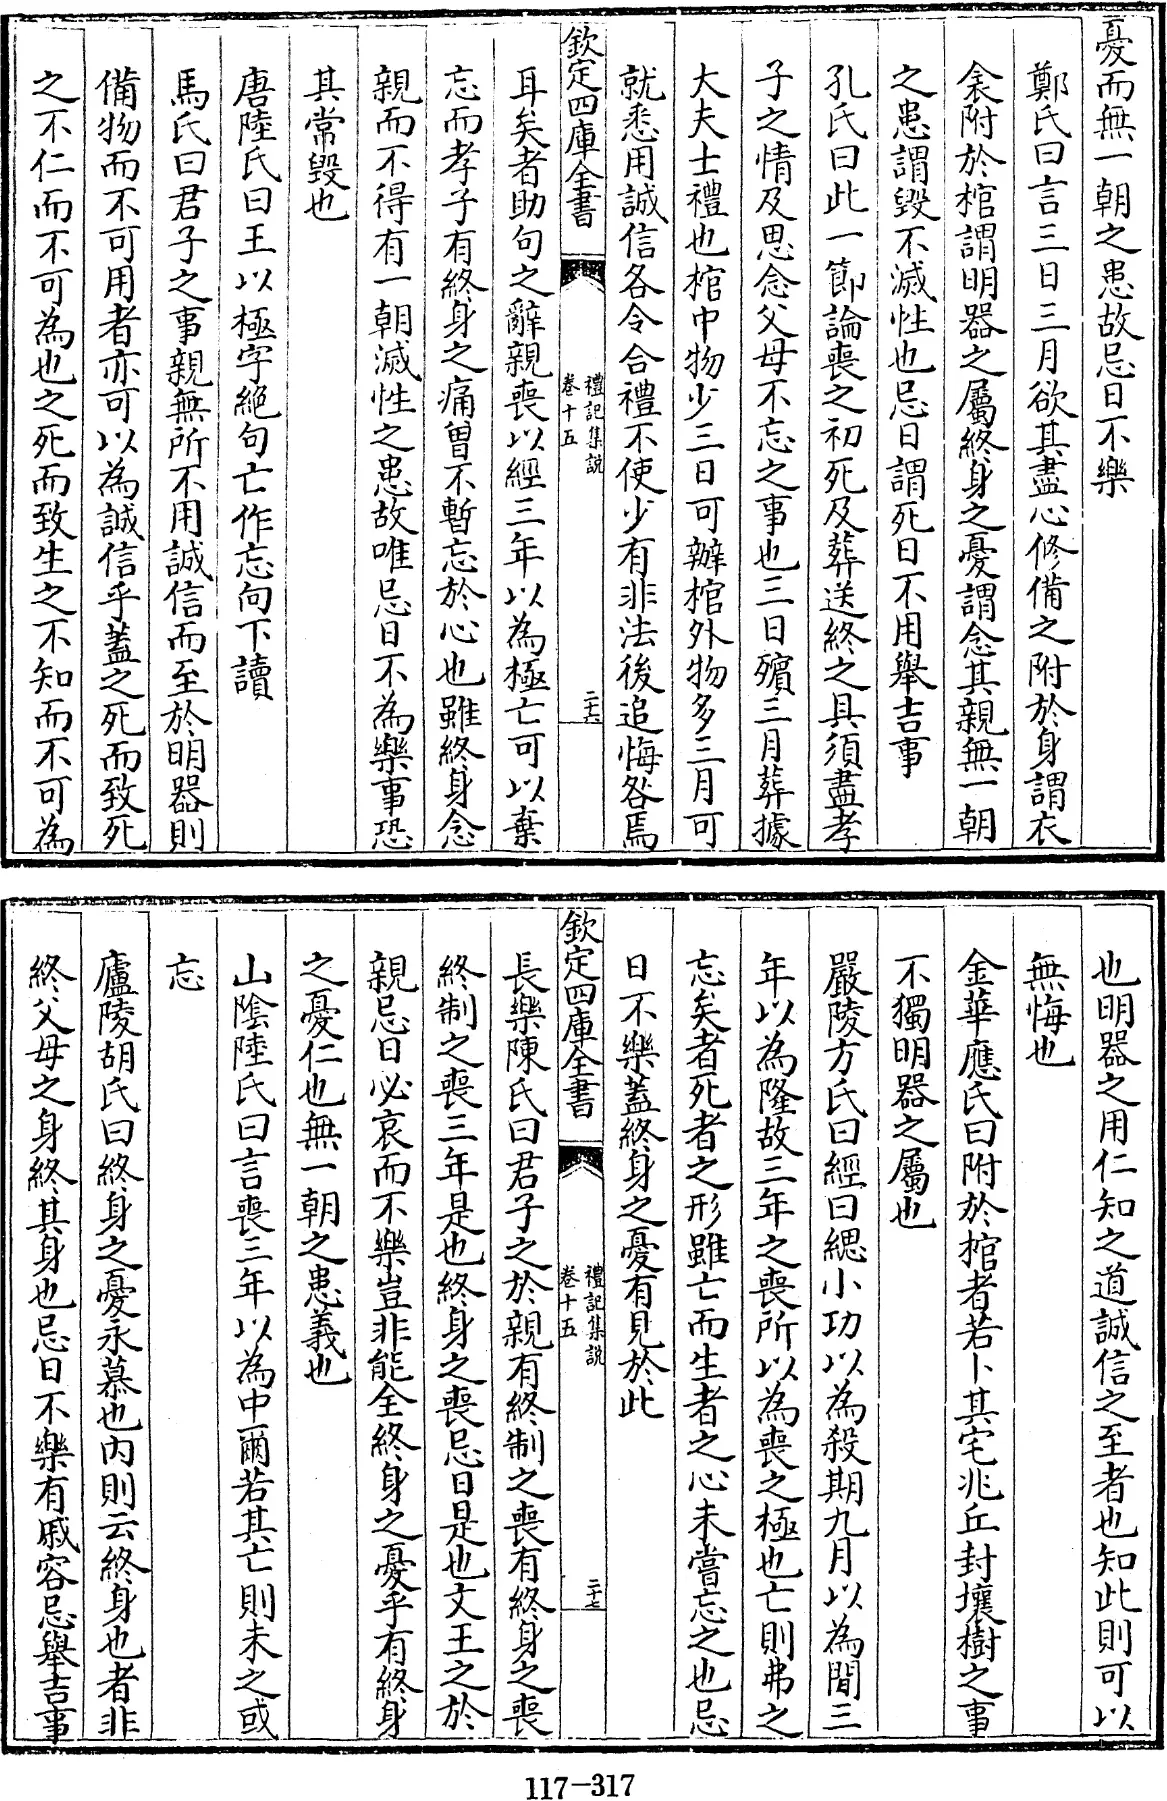 憂而無一朝之患故忌日不樂
鄭氏曰言三日三月欲其盡心修備之附於身謂衣
衾附於棺謂明器之屬終身之憂謂念其親無一朝
之患謂毀不滅性也忌日謂死日不用舉吉事
孔氏曰此一節論喪之初死及葬送終之具須盡孝
子之情及思念父母不忘之事也三日殯三月葬據
大夫士禮也棺中物少三日可辦棺外物多三月可
就悉用誠信各令合禮不使少有非法後追悔咎焉
欽定四庫全書
禮記集說
卷十五
二十六
耳矣者助句之辭親喪以經三年以為極亡可以棄
忘而孝子有終身之痛曽不暫忘於心也雖終身念
親而不得有一朝滅性之患故唯忌日不為樂事恐
其常毀也
唐陸氏曰王以極字絕句亡作忘向下讀
馬氏曰君子之事親無所不用誠信而至於明器則
備物而不可用者亦可以為誠信乎蓋之死而致死
之不仁而不可為也之死而致生之不知而不可為
也明器之用仁知之道誠信之至者也知此則可以
無悔也
金華應氏曰附於棺者若卜其宅兆丘封壤樹之事
不獨明器之屬也
嚴陵方氏曰經曰緦小功以為殺期九月以為間三
年以為隆故三年之喪所以為喪之極也亡則弗之
忘矣者死者之形雖亡而生者之心未嘗忘之也忌
日不樂蓋終身之憂有見於此
欽定四庫全書
禮記集說
卷十五
二十七
長樂陳氏曰君子之於親有終制之喪有終身之喪
終制之喪三年是也終身之喪忌日是也文王之於
親忌日必哀而不樂豈非能全終身之憂乎有終身
之憂仁也無一朝之患義也
山陰陸氏曰言喪三年以為中爾若其亡則未之或
忘
廬陵胡氏曰終身之憂永慕也內則云終身也者非
終父母之身終其身也忌日不樂有戚容忌舉吉事
117-317